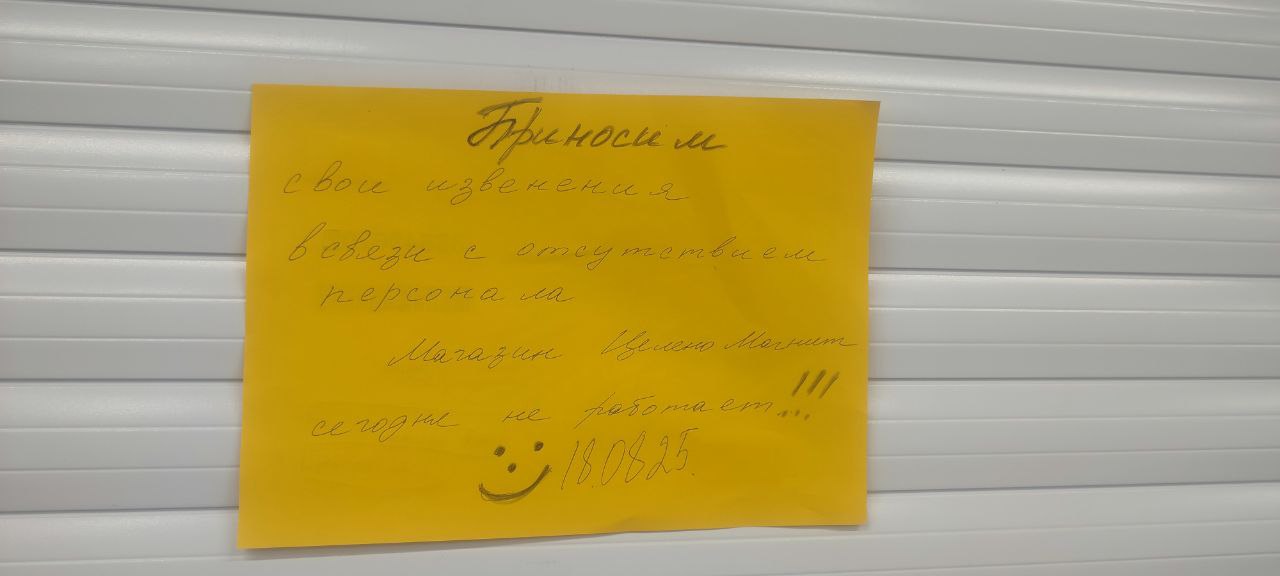 Приносим
свои извенения
в связи с отсутствием
персонала
Магазин Целено Магнит
сегодня не работает!!!
18.08.25.